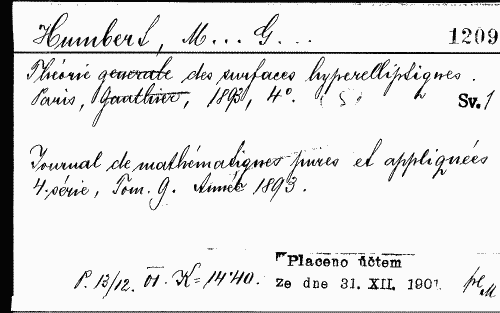 Humbert, M... G...
1209
Théorie generale des surfaces hyperelliptiques.
Paris, Gauthier, 1893, 4°. (5)
Sv. 1
Journal de mathématiques pures et appliquées
4. série, Tom. 9. Année 1893.
P. 13/12. 01. K = 14·40.
Placeno účtem
ze dne 31. XII. 1901